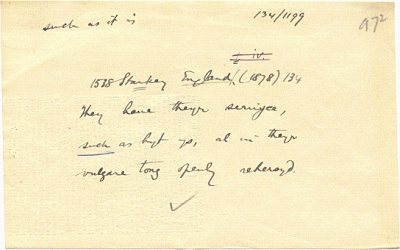 such as it is
134/1199
972
I iv.
1538 Starkey England (1878) 134
They haue theyr seruyce,
such as hyt ys, al in theyr
vulgare tong openly rehersyd.